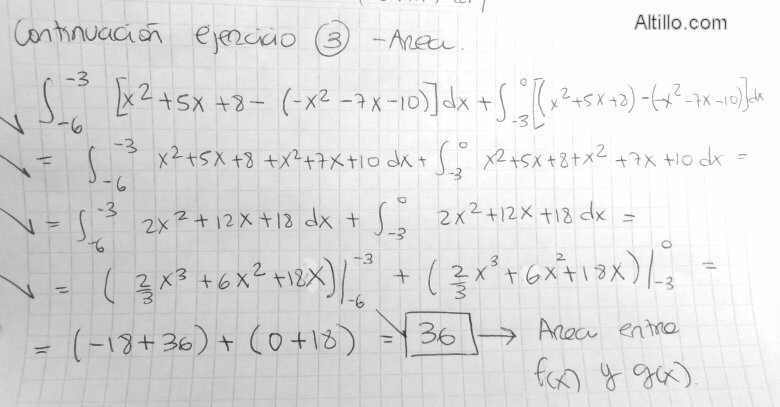 Altillo.com
Continuación ejercicio ③ - Area.
∫₋₆⁻³ [x²+5x+8-(-x²-7x-10)]dx + ∫₋₃⁰ [(x²+5x+8)-(-x²-7x-10)]dx
= ∫₋₆⁻³ x²+5x+8+x²+7x+10 dx + ∫₋₃⁰ x²+5x+8+x²+7x+10 dx =
= ∫₋₆⁻³ 2x²+12x+18 dx + ∫₋₃⁰ 2x²+12x+18 dx =
= (2/3 x³+6x²+18x)|₋₆⁻³ + (2/3 x³+6x²+18x)|₋₃⁰ =
= (-18+36) + (0+18) = 36 → Area entre
f(x) y g(x).